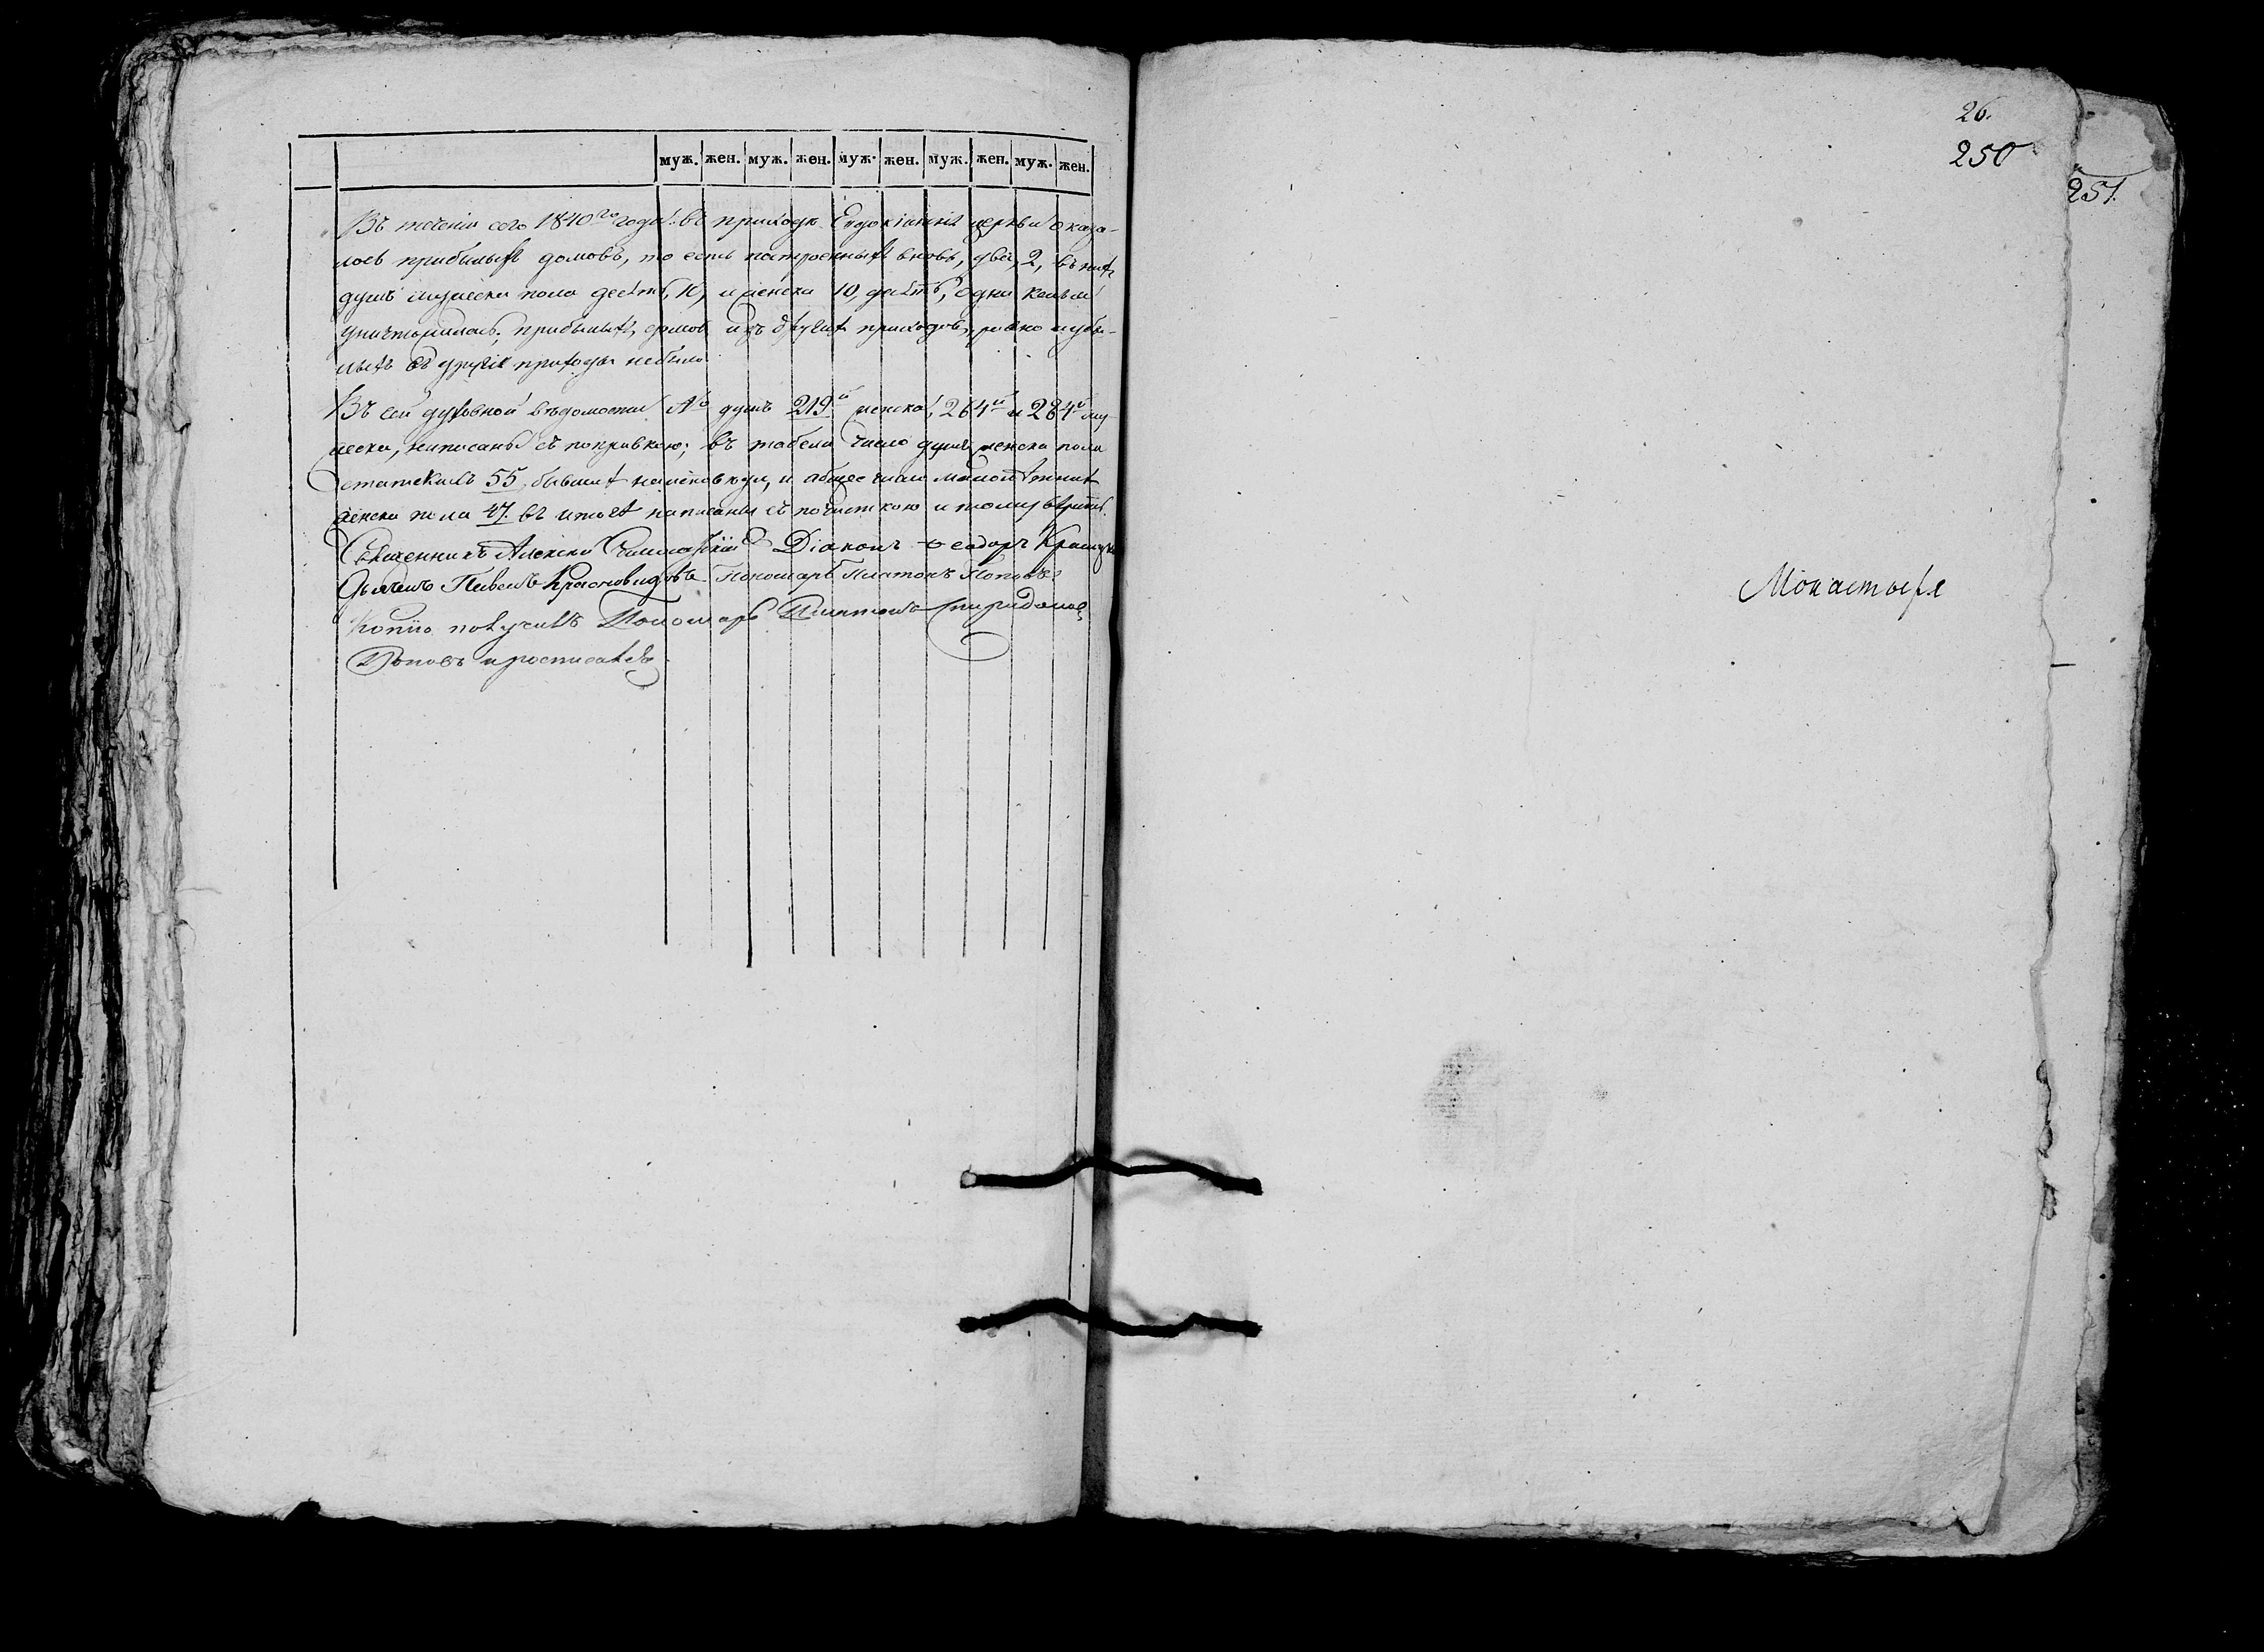 муж. жен. муж. жен. муж. жен. муж. жен. муж. жен.
Въ теченіи сего 1840го года въ приходѣ Евдокіинскія церкви оказа-
лось прибылыхъ домовъ, то есть построенныхъ вновь, два, 2, въ нихъ
душъ мужеска пола десять, 10, и женска 10, десять, одна келья
уничтожилась; прибылыхъ домовъ изъ другихъ приходовъ, равно и убы-
лыхъ въ другія приходы небыло.
Въ сей духовной вѣдомости № душъ 219й женска, 264й и 284й му-
жеска, написаны съ поправкою; въ табели число душъ женска пола
статскихъ 55 бывшихъ на исповѣди, и общее число
женска пола 47. въ итогѣ написаны съ почисткою и тому вѣрить.
Священникъ Алексій Діаконъ Ѳеодоръ
Дьячекъ Павелъ Красновидовъ Пономарь Платонъ Поповъ
Копію получилъ Пономарь Платонъ Спиридоновъ
Поповъ и росписался
26.
250
251.
Монастыря